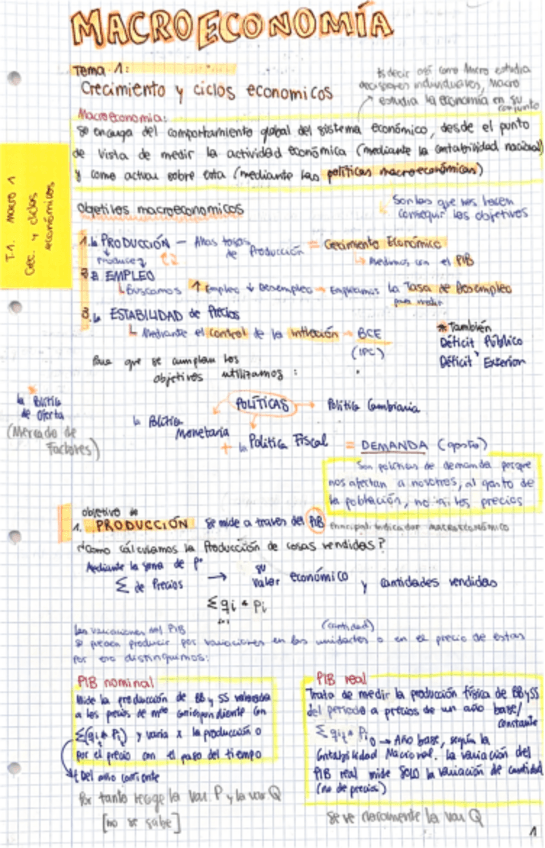 MACROECONOMÍA
Tema 1:
Crecimiento y ciclos economicos
Es decir asi como Micro estudia
decisiones individuales, Macro
estudia la economía en su
conjunto
Macroeconomia:
se encarga del comportamiento global del sistema económico, desde el punto
de vista de medir la actividad económica (mediante la contabilidad nacional)
y como actuar sobre esta (mediante las políticas macroeconómicas)
T.1. Macro 1
Crec. y ciclos
económicos
Objetivos macroeconomicos
Son los que nos hacen
conseguir los objetivos
1. PRODUCCIÓN — Altas tasas de Producción = Crecimiento Económico
Medimos con el PIB
2. EMPLEO
Buscamos ↑ Empleo ↓ Desempleo — Empleamos la Tasa de Desempleo
para medir
3. ESTABILIDAD de Precios
Mediante el control de la inflación → BCE
(IPC)
* También
Déficit Público
Déficit Exterior
Para que se cumplan los
objetivos utilizamos:
POLÍTICAS → Política Cambiaria
la Política
de Oferta
(Mercado de
Factores)
Política
Monetaria
+ Política Fiscal = DEMANDA (gasto)
Son políticas de demanda porque
nos afectan a nosotros, al gasto de
la población, no a los precios
objetivo de
1. PRODUCCIÓN Se mide a traves del PIB Principal indicador macroeconómico
¿Como calculamos la Producción de cosas vendidas?
Mediante la suma de
Σ de Precios → su valor económico y cantidades vendidas
Σ qi * Pi
i=1
Las variaciones del PIB (cantidad)
se pueden producir por variaciones en las unidades o en el precio de estas
por eso distinguimos:
PIB nominal
Mide la producción de BB y SS valorada
a los precios de mdo correspondiente con
Σ(qi * Pi) y varía x la producción o
por el precio con el paso del tiempo
Del año corriente
Por tanto recoge la var P y la var Q
[no se sabe]
PIB real
Trata de medir la producción física de BB y SS
del periodo a precios de un año base/
constante
Σ qi * Pi0 → Año base, según la
Contabilidad Nacional. La variación del
PIB real mide SOLO la variación de cantidad
(no de precios)
Se ve claramente la var Q
1